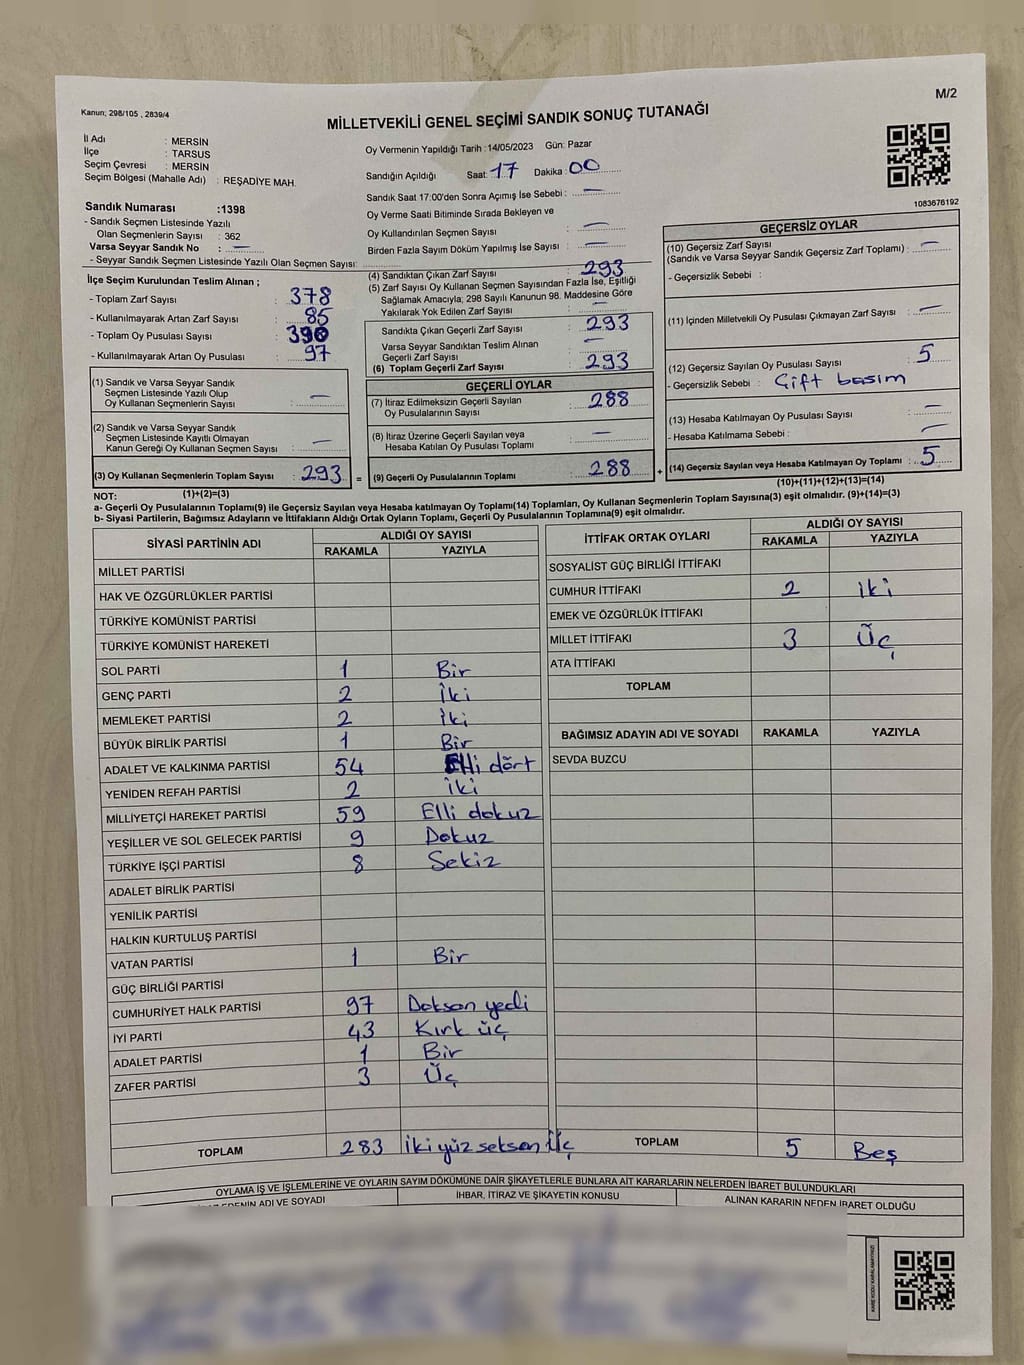 M/2
Kanun; 298/105 , 2839/4
MİLLETVEKİLİ GENEL SEÇİMİ SANDIK SONUÇ TUTANAĞI
İl Adı : MERSİN
İlçe : TARSUS
Seçim Çevresi : MERSİN
Seçim Bölgesi (Mahalle Adı) : REŞADİYE MAH.
Sandık Numarası :1398
- Sandık Seçmen Listesinde Yazılı
Olan Seçmenlerin Sayısı : 362
Varsa Seyyar Sandık No : —
- Seyyar Sandık Seçmen Listesinde Yazılı Olan Seçmen Sayısı:
Oy Vermenin Yapıldığı Tarih :14/05/2023 Gün: Pazar
Sandığın Açıldığı Saat: 17 Dakika: 00
Sandık Saat 17:00'den Sonra Açımış İse Sebebi : —
Oy Verme Saati Bitiminde Sırada Bekleyen ve
Oy Kullandırılan Seçmen Sayısı : —
Birden Fazla Sayım Döküm Yapılmış İse Sayısı : —
1083676192
İlçe Seçim Kurulundan Teslim Alınan ;
- Toplam Zarf Sayısı : 378
- Kullanılmayarak Artan Zarf Sayısı : 85
- Toplam Oy Pusulası Sayısı : 390
- Kullanılmayarak Artan Oy Pusulası : 97
(1) Sandık ve Varsa Seyyar Sandık
Seçmen Listesinde Yazılı Olup
Oy Kullanan Seçmenlerin Sayısı : —
(2) Sandık ve Varsa Seyyar Sandık
Seçmen Listesinde Kayıtlı Olmayan
Kanun Gereği Oy Kullanan Seçmen Sayısı : —
(3) Oy Kullanan Seçmenlerin Toplam Sayısı : 293 =
(1)+(2)=(3)
(4) Sandıktan Çıkan Zarf Sayısı : 293
(5) Zarf Sayısı Oy Kullanan Seçmen Sayısından Fazla İse, Eşitliği
Sağlamak Amacıyla; 298 Sayılı Kanunun 98. Maddesine Göre
Yakılarak Yok Edilen Zarf Sayısı : —
Sandıkta Çıkan Geçerli Zarf Sayısı : 293
Varsa Seyyar Sandıktan Teslim Alınan
Geçerli Zarf Sayısı : —
(6) Toplam Geçerli Zarf Sayısı : 293
GEÇERLİ OYLAR
(7) İtiraz Edilmeksizin Geçerli Sayılan
Oy Pusulalarının Sayısı : 288
(8) İtiraz Üzerine Geçerli Sayılan veya
Hesaba Katılan Oy Pusulası Toplamı : —
(9) Geçerli Oy Pusulalarının Toplamı : 288 +
GEÇERSİZ OYLAR
(10) Geçersiz Zarf Sayısı
(Sandık ve Varsa Seyyar Sandık Geçersiz Zarf Toplamı) : —
- Geçersizlik Sebebi :
(11) İçinden Milletvekili Oy Pusulası Çıkmayan Zarf Sayısı : —
(12) Geçersiz Sayılan Oy Pusulası Sayısı : 5
- Geçersizlik Sebebi : Çift basım
(13) Hesaba Katılmayan Oy Pusulası Sayısı : —
- Hesaba Katılmama Sebebi : —
(14) Geçersiz Sayılan veya Hesaba Katılmayan Oy Toplamı : 5
(10)+(11)+(12)+(13)=(14)
NOT:
a- Geçerli Oy Pusulalarının Toplamı(9) ile Geçersiz Sayılan veya Hesaba katılmayan Oy Toplamı(14) Toplamları, Oy Kullanan Seçmenlerin Toplam Sayısına(3) eşit olmalıdır. (9)+(14)=(3)
b- Siyasi Partilerin, Bağımsız Adayların ve İttifakların Aldığı Ortak Oyların Toplamı, Geçerli Oy Pusulalarının Toplamına(9) eşit olmalıdır.
SİYASİ PARTİNİN ADI ALDIĞI OY SAYISI
RAKAMLA YAZIYLA
MİLLET PARTİSİ
HAK VE ÖZGÜRLÜKLER PARTİSİ
TÜRKİYE KOMÜNİST PARTİSİ
TÜRKİYE KOMÜNİST HAREKETİ
SOL PARTİ 1 Bir
GENÇ PARTİ 2 İki
MEMLEKET PARTİSİ 2 İki
BÜYÜK BİRLİK PARTİSİ 1 Bir
ADALET VE KALKINMA PARTİSİ 54 Elli dört
YENİDEN REFAH PARTİSİ 2 İki
MİLLİYETÇİ HAREKET PARTİSİ 59 Elli dokuz
YEŞİLLER VE SOL GELECEK PARTİSİ 9 Dokuz
TÜRKİYE İŞÇİ PARTİSİ 8 Sekiz
ADALET BİRLİK PARTİSİ
YENİLİK PARTİSİ
HALKIN KURTULUŞ PARTİSİ
VATAN PARTİSİ 1 Bir
GÜÇ BİRLİĞİ PARTİSİ
CUMHURİYET HALK PARTİSİ 97 Doksan yedi
İYİ PARTİ 43 Kırk üç
ADALET PARTİSİ 1 Bir
ZAFER PARTİSİ 3 Üç
TOPLAM 283 İki yüz seksen Üç
İTTİFAK ORTAK OYLARI ALDIĞI OY SAYISI
RAKAMLA YAZIYLA
SOSYALİST GÜÇ BİRLİĞİ İTTİFAKI
CUMHUR İTTİFAKI 2 iki
EMEK VE ÖZGÜRLÜK İTTİFAKI
MİLLET İTTİFAKI 3 Üç
ATA İTTİFAKI
TOPLAM
BAĞIMSIZ ADAYIN ADI VE SOYADI RAKAMLA YAZIYLA
SEVDA BUZCU
TOPLAM 5 Beş
OYLAMA İŞ VE İŞLEMLERİNE VE OYLARIN SAYIM DÖKÜMÜNE DAİR ŞİKAYETLERLE BUNLARA AİT KARARLARIN NELERDEN İBARET BULUNDUKLARI
ADI VE SOYADI İHBAR, İTİRAZ VE ŞİKAYETİN KONUSU ALINAN KARARIN NEDEN İBARET OLDUĞU
KAREKODU KARALAMAYINIZ!